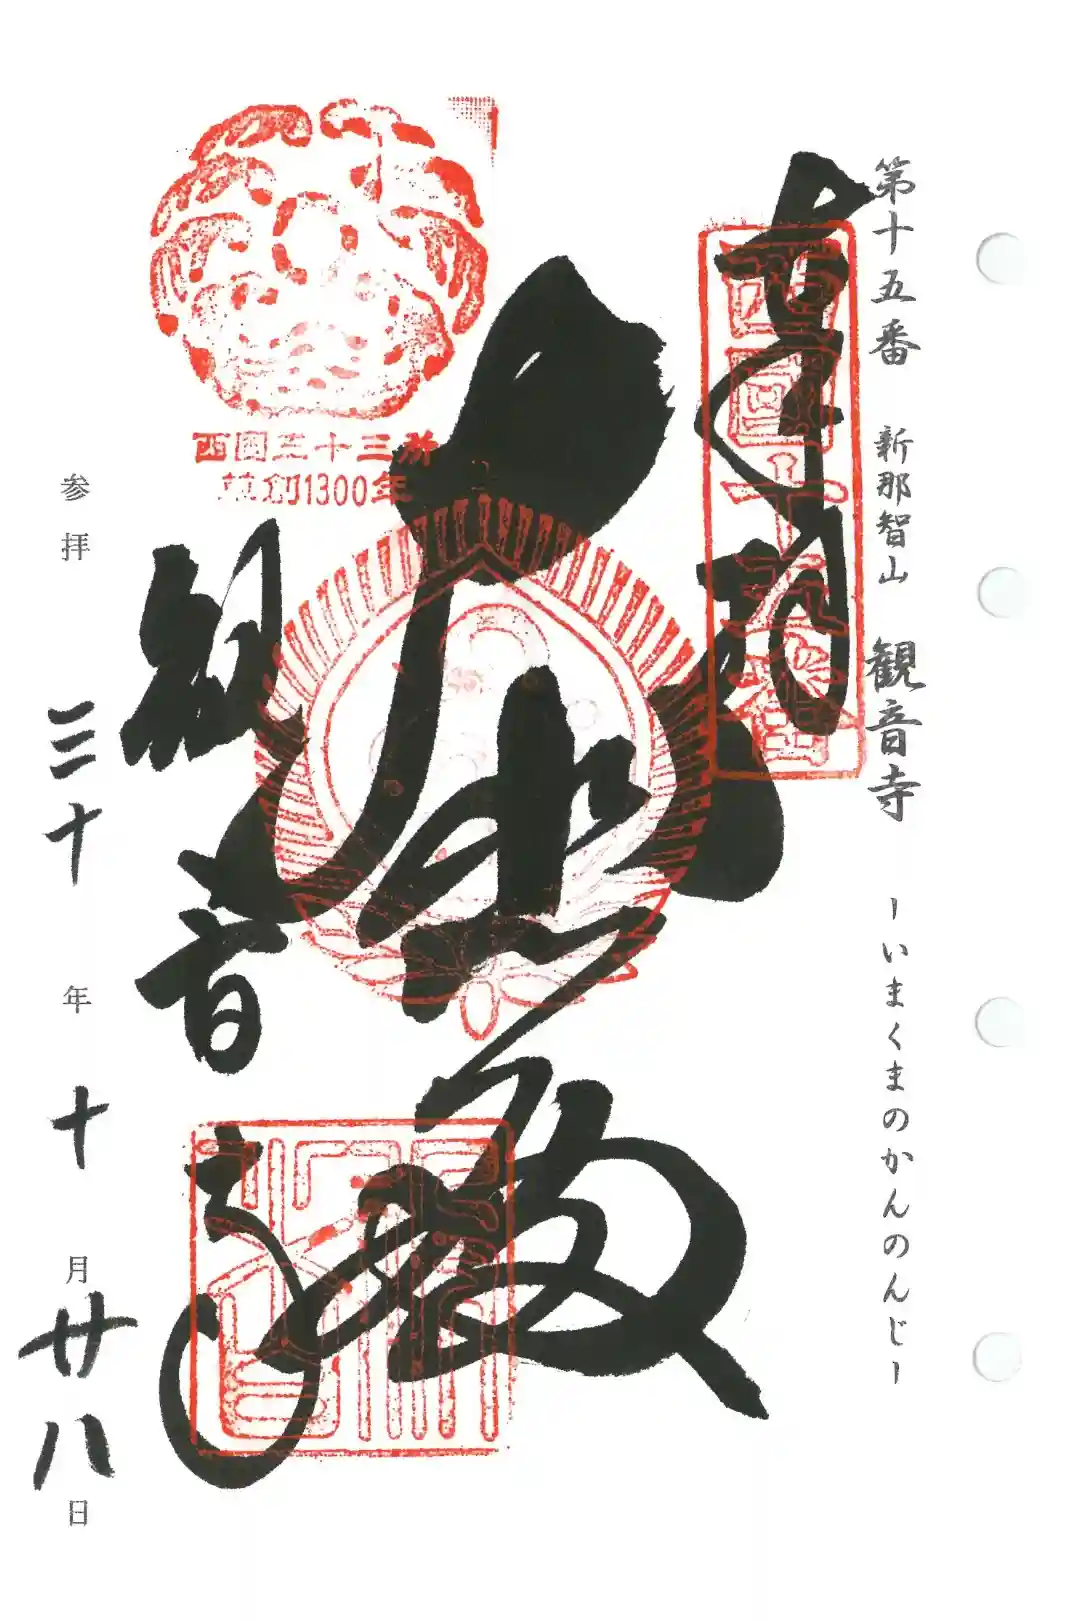 第十五番 新那智山 観音寺 ーいまくまのかんのんじー
奉拝
西國十五番
大悲殿
西国三十三所
草創1300年
観音寺
参拝 三十年十月廿八日